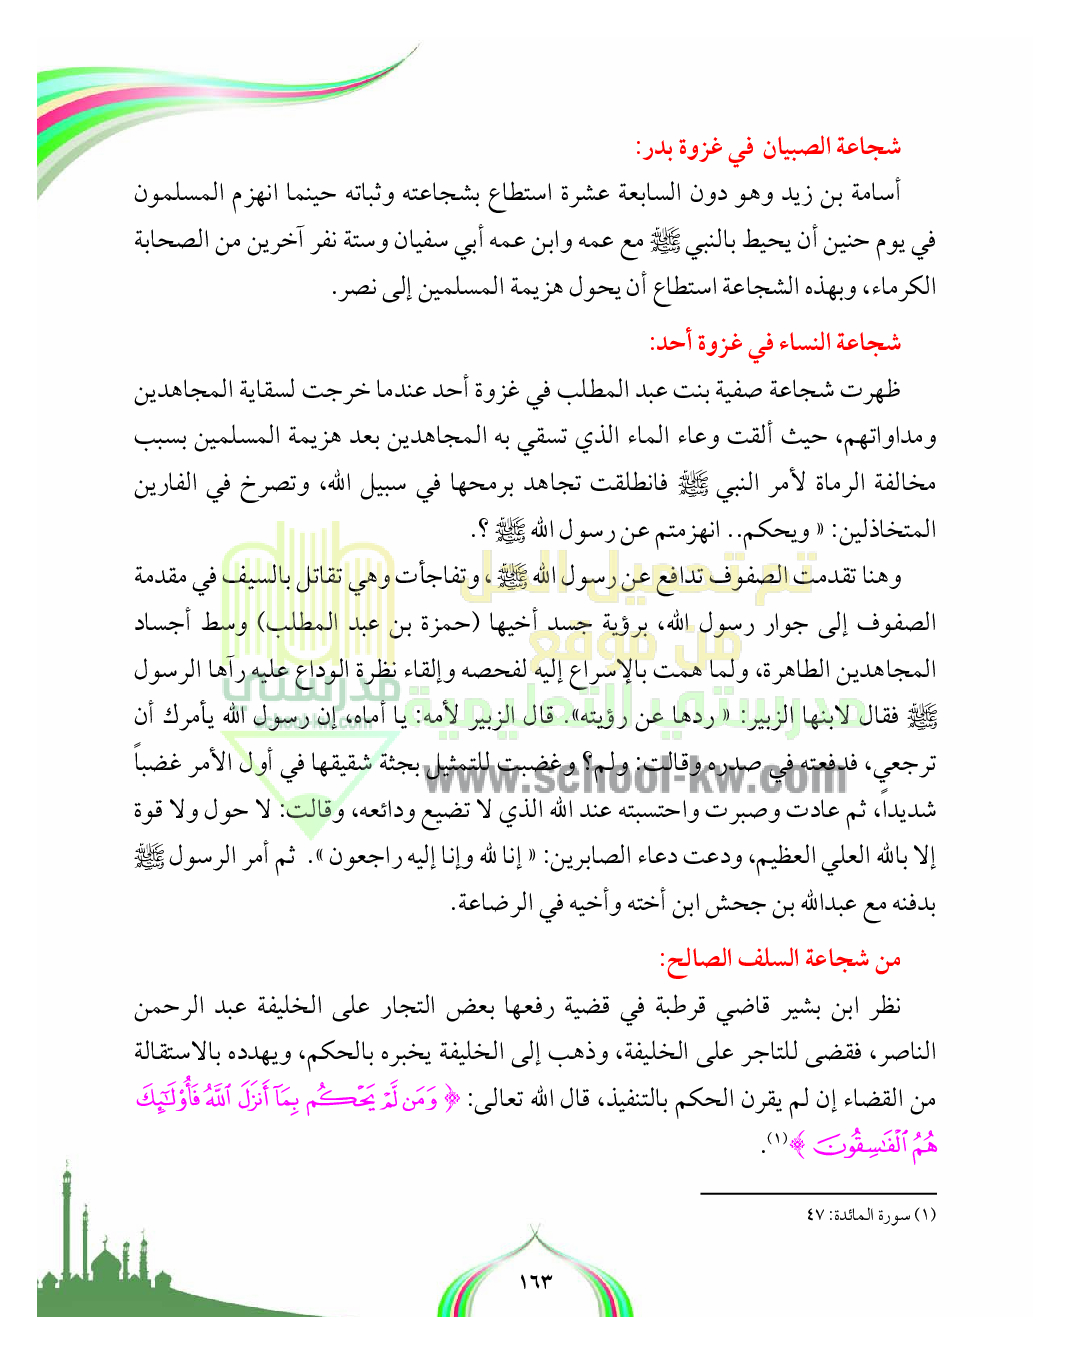 شجاعة الصبيان في غزوة بدر:
أسامة بن زيد وهو دون السابعة عشرة استطاع بشجاعته وثباته حينما انهزم المسلمون
في يوم حنين أن يحيط بالنبي ﷺ مع عمه وابن عمه أبي سفيان وستة نفر آخرين من الصحابة
الكرماء، وبهذه الشجاعة استطاع أن يحول هزيمة المسلمين إلى نصر.
شجاعة النساء في غزوة أحد:
ظهرت شجاعة صفية بنت عبد المطلب في غزوة أحد عندما خرجت لسقاية المجاهدين
ومداواتهم، حيث ألقت وعاء الماء الذي تسقي به المجاهدين بعد هزيمة المسلمين بسبب
مخالفة الرماة لأمر النبي ﷺ فانطلقت تجاهد برمحها في سبيل الله، وتصرخ في الفارين
المتخاذلين: « ويحكم.. انهزمتم عن رسول الله ﷺ ؟.
وهنا تقدمت الصفوف تدافع عن رسول الله ﷺ ، وتفاجأت وهي تقاتل بالسيف في مقدمة
الصفوف إلى جوار رسول الله، برؤية جسد أخيها (حمزة بن عبد المطلب) وسط أجساد
المجاهدين الطاهرة، ولما همت بالإسراع إليه لفحصه وإلقاء نظرة الوداع عليه رآها الرسول
ﷺ فقال لابنها الزبير: « ردها عن رؤيته». قال الزبير لأمه: يا أماه، إن رسول الله يأمرك أن
ترجعي، فدفعته في صدره وقالت: ولم؟ وغضبت للتمثيل بجثة شقيقها في أول الأمر غضباً
شديداً، ثم عادت وصبرت واحتسبته عند الله الذي لا تضيع ودائعه، وقالت: لا حول ولا قوة
إلا بالله العلي العظيم، ودعت دعاء الصابرين: « إنا لله وإنا إليه راجعون ». ثم أمر الرسول ﷺ
بدفنه مع عبدالله بن جحش ابن أخته وأخيه في الرضاعة.
من شجاعة السلف الصالح:
نظر ابن بشير قاضي قرطبة في قضية رفعها بعض التجار على الخليفة عبد الرحمن
الناصر، فقضى للتاجر على الخليفة، وذهب إلى الخليفة يخبره بالحكم، ويهدده بالاستقالة
من القضاء إن لم يقرن الحكم بالتنفيذ، قال الله تعالى: ﴿ وَمَن لَّمْ يَحْكُم بِمَآ أَنزَلَ ٱللَّهُ فَأُوْلَٰٓئِكَ
هُمُ ٱلْفَٰسِقُونَ ﴾(١).
(١) سورة المائدة: ٤٧
١٦٣
تم تحميل الحل
من موقع
مدرستي التعليمية
www.school-kw.com
مدرستي
school-kw.com